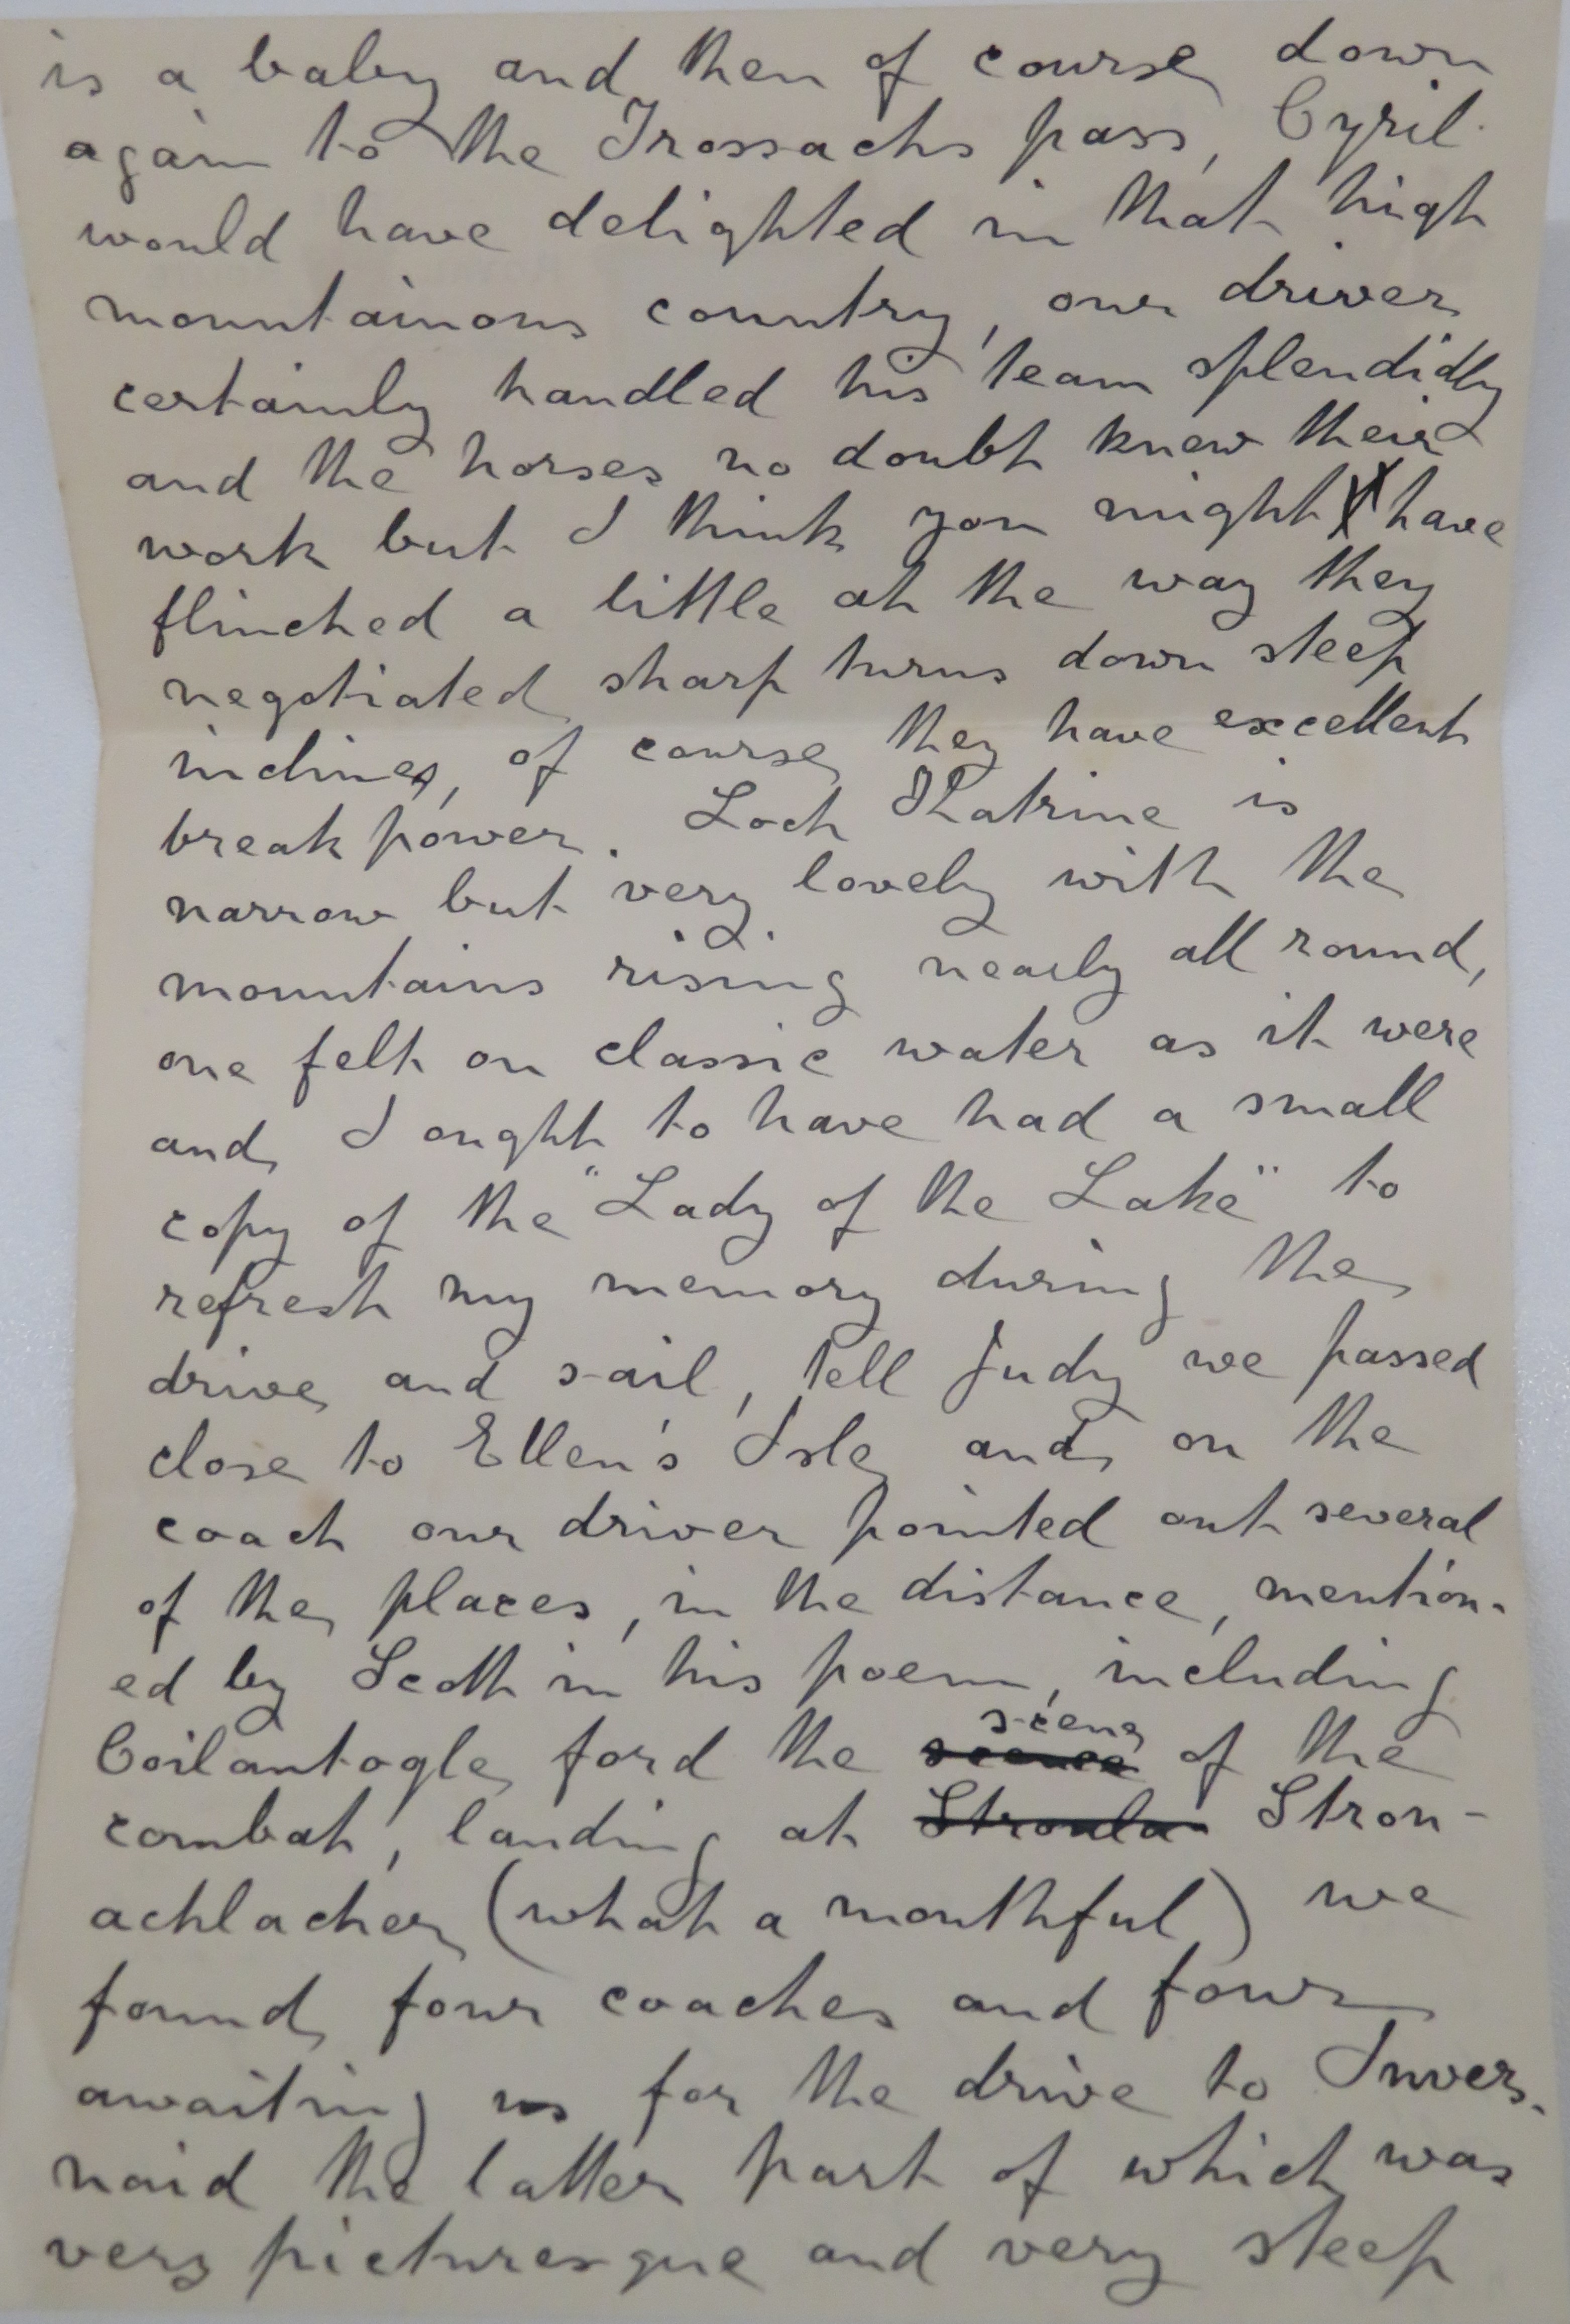 is a baby and then of course down
again to the Trossachs pass, Cyril
would have delighted in that high
mountainous country, our driver
certainly handled his team splendidly
and the horses no doubt knew their
work but I think you might have
flinched a little at the way they
negotiated sharp turns down steep
inclines, of course they have excellent
break power. Loch Katrine is
narrow but very lovely with the
mountains rising nearly all round,
one felt on classic water as it were
and I ought to have had a small
copy of the "Lady of the Lake" to
refresh my memory during the
drive and sail, tell Judy we passed
close to Ellen's Isle and on the
coach our driver pointed out several
of the places, in the distance, mention-
ed by Scott in his poem, including
Coilantogle ford the scene of the
combat, landing at Stronla Stron-
achlacher (what a mouthful) we
found four coaches and four
awaiting us for the drive to Invers-
naid the latter part of which was
very picturesque and very steep